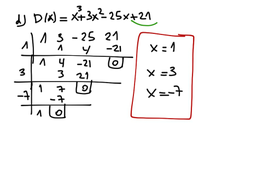 d) D(x) = x³+3x²-25x+21
1 3 -25 21
1 | 1 4 -21
1 4 -21 0
3 | 3 21
1 7 0
-7 | -7
1 0
x = 1
x = 3
x = -7